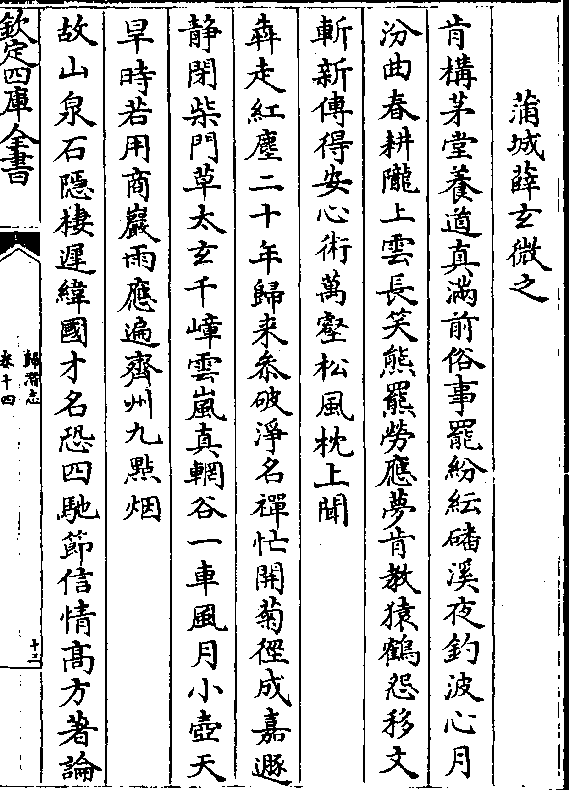 蒲城薛玄微之
肯構茅堂養道真滿前俗事罷紛紜磻溪夜釣波心月
汾曲春耕隴上雲長笑熊羆勞應夢肯教猿鶴怨移文
斬新傳得安心術萬壑松風枕上聞
犇走紅塵二十年歸来叅破淨名禪忙開菊徑成嘉遯
静閉柴門草太玄千嶂雲嵐真輞谷一車風月小壺天
旱時若用商巖雨應遍齊州九點烟
故山泉石隱棲遲緯國才名恐四馳節信情高方著論
欽定四庫全書
歸潛志
卷十四
十三